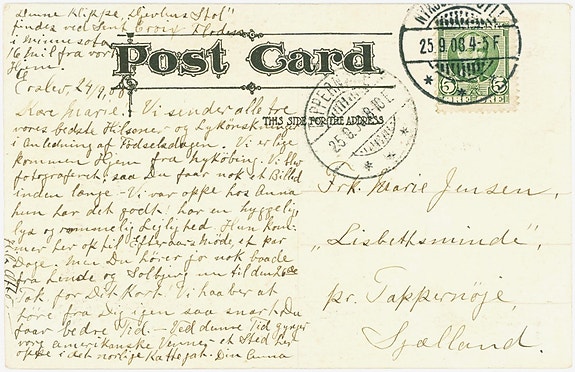 Denne Klippe, "Djevlens Stol"
findes ved Sent Croix Floden
i Minnesota
16 mil fra vor
Hjem.
Post Card
THIS SIDE FOR THE ADDRESS
25.9.08.4-5 F
25.9.08.8-10 F
5 5
24/9 08
Kære Marie. Vi sender alle tre
vores bedste Hilsener og Lykønskninger
i Anledning af Fødselsdagen. Vi er lige
kommen Hjem fra Nykøbing. Vi blev
fotograferet, saa Du faar nok et Billed
inden længe - Vi var oppe hos Anna
hun har det godt, har en hyggelig,
lys og rummelig Lejlighed. Hun kom-
mer her op til Efteraars Møde, et par
Dage. Men Du hører jo nok baade
fra hende og Solbjerg nu til den 26de
Tak for Dit Kort. Vi haaber at
høre fra Dig igen saa snart Du
faar bedre Tid. - Ved denne Tid gynger
vore amerikanske Venner et Sted der
oppe i det nordlige Kattegat. Din Anna
Frk. Marie Jensen,
"Lisbethsminde",
pr. Tappernøje,
Sjælland.